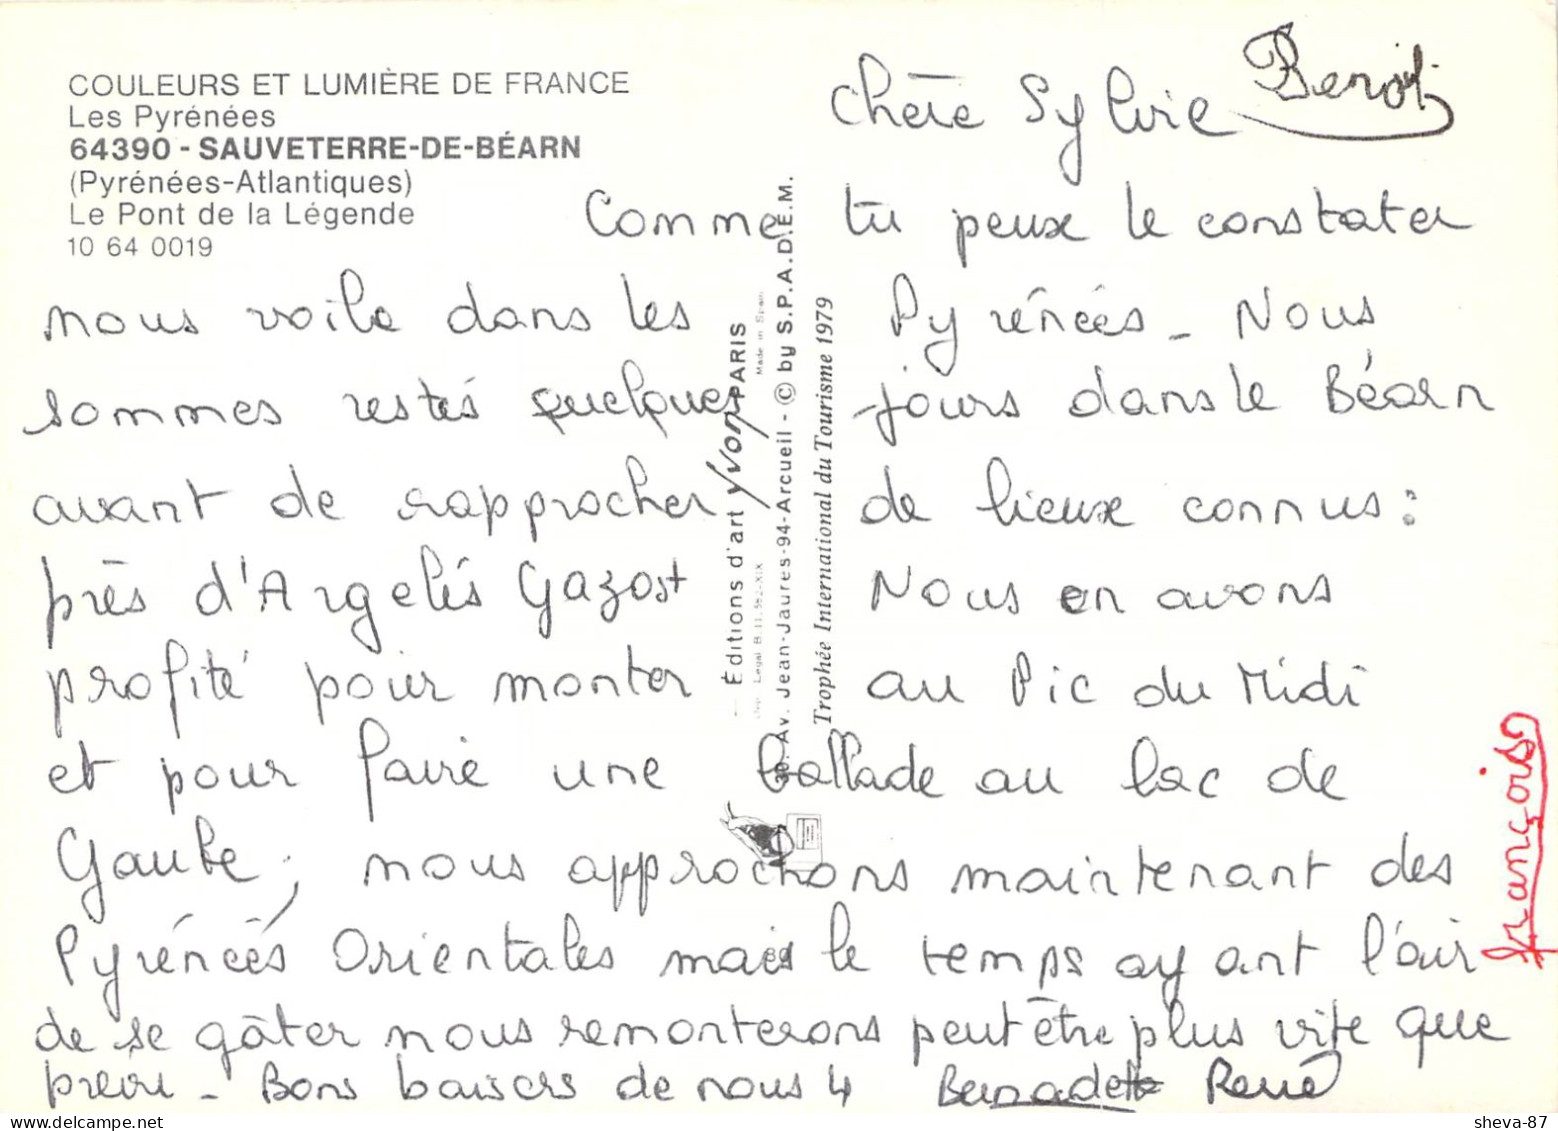 COULEURS ET LUMIÈRE DE FRANCE
Les Pyrénées
64390 - SAUVETERRE-DE-BÉARN
(Pyrénées-Atlantiques)
Le Pont de la Légende
10 64 0019
Benoit
Chère Sylvie
Comme tu peux le constater
nous voila dans les Pyrénées - Nous
sommes restés quelques jours dans le Béarn
avant de rapprocher de lieux connus :
près d'Argelés Gazost Nous en avons
profité pour monter au Pic du Midi
et pour faire une ballade au lac de
Gaube, nous approchons maintenant des
Pyrénées Orientales mais le temps ayant l'air
de se gâter nous remonterons peut être plus vite que
prevu - Bons baisers de nous 4 Bernadette René
François
Éditions d'art Yvon PARIS
Made in Spain
Dep. Legal B. 11.582-XIX
Av. Jean-Jaures-94-Arcueil - © by S.P.A.D.E.M.
Trophée International du Tourisme 1979
sheva-87